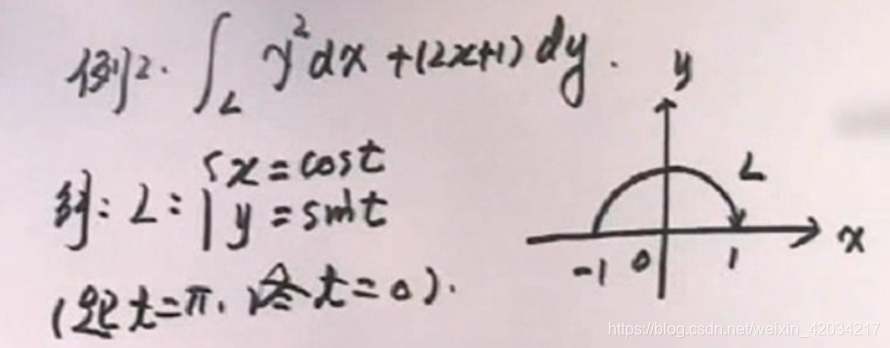 例2. ∫_L y²dx+(2x+1)dy.
y
解: L: { x=cost
y=sint
L
-1 0 1 x
(起t=π, 终t=0).
https://blog.csdn.net/weixin_42034217